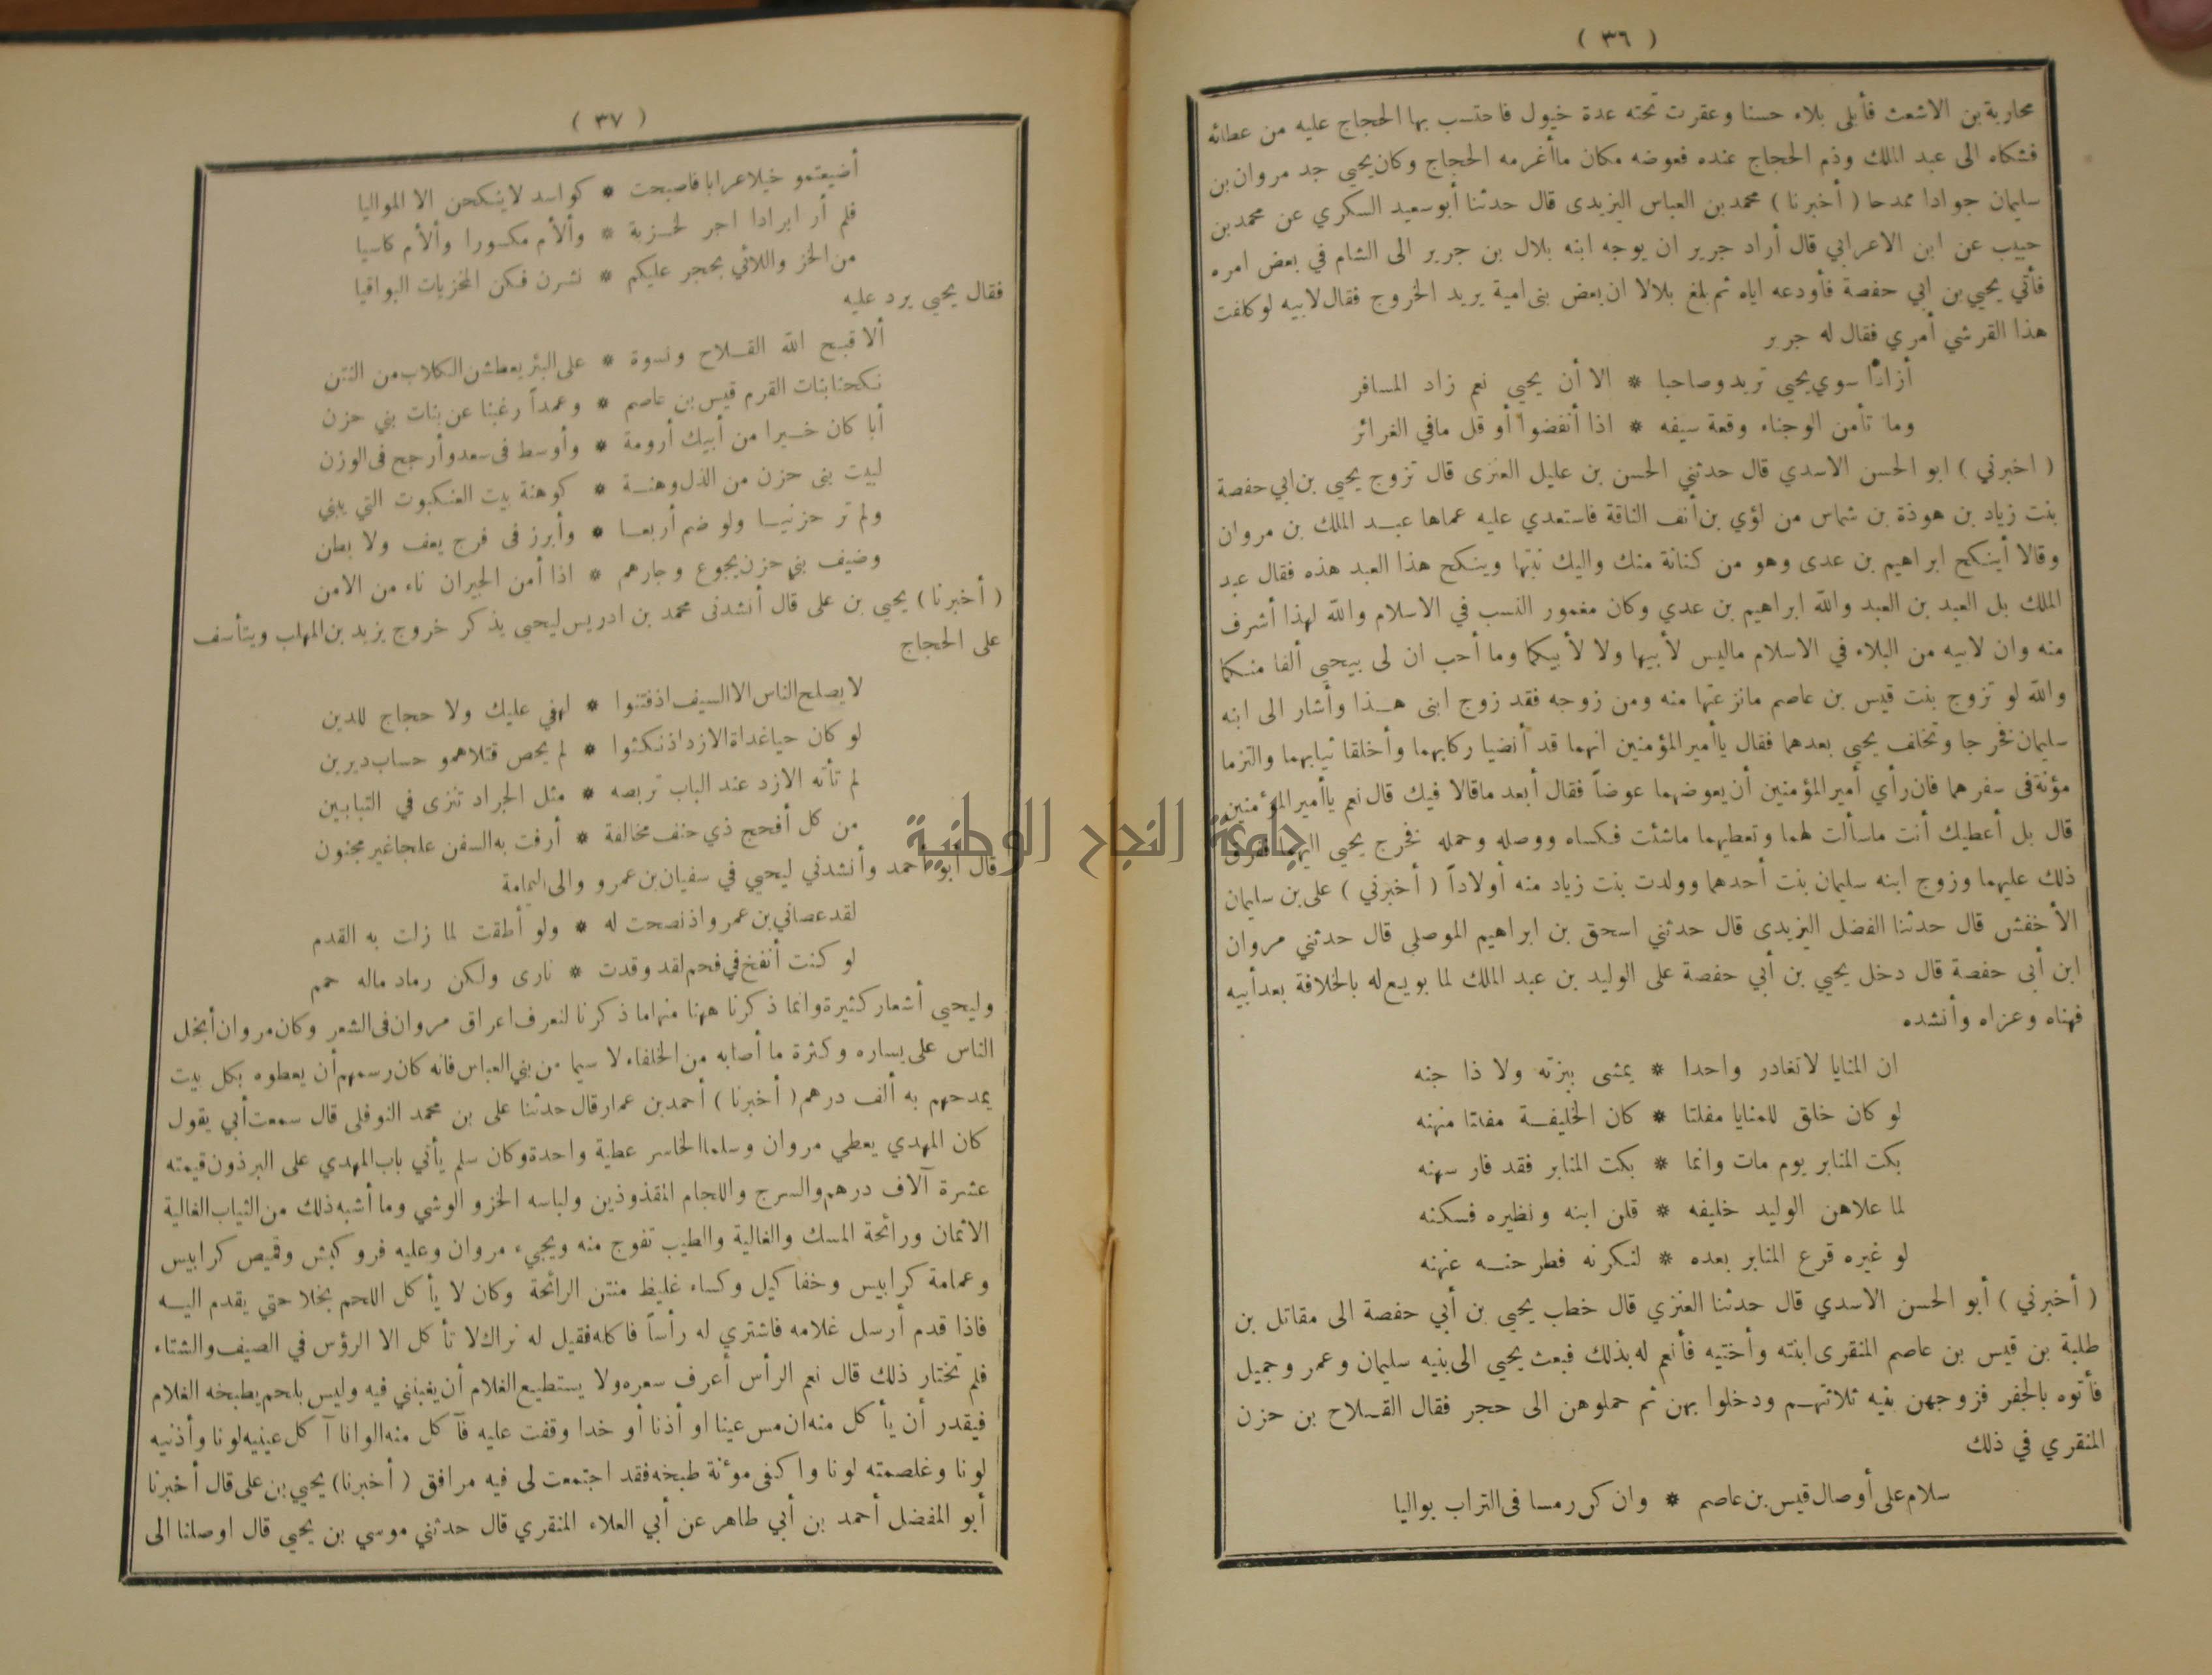 ( ٣٦ )
محاربة بن الاشعث فأبلى بلاء حسنا وعقرت تحته عدة خيول فاحتسب بها الحجاج عليه من عطائه
فشكاه الى عبد الملك وذم الحجاج عنده فعوضه مكان ما أغرمه الحجاج وكان يحيي جد مروان بن
سليمان جوادا ممدحا ( أخبرنا ) محمد بن العباس اليزيدى قال حدثنا أبو سعيد السكري عن محمد بن
حبيب عن ابن الاعرابي قال أراد جرير ان يوجه ابنه بلال بن جرير الى الشام في بعض امره
فأتي يحيي بن ابي حفصة فأودعه اياه ثم بلغ بلالا ان بعض بنى امية يريد الخروج فقال لابيه لو كلفت
هذا القرشي أمري فقال له جرير
أزادًا سوي يحيي تريد وصاحبا * الا أن يحيي نعم زاد المسافر
وما تأمن الوجناء وقعة سيفه * اذا أنفضوا أو قل مافي الغرائر
( اخبرني ) ابو الحسن الاسدي قال حدثني الحسن بن عليل العنزى قال تزوج يحيي بن ابي حفصة
بنت زياد بن هوذة بن شماس من لؤي بن أنف الناقة فاستعدي عليه عماها عبد الملك بن مروان
وقالا أينكح ابراهيم بن عدى وهو من كنانة منك واليك بنتها وينكح هذا العبد هذه فقال عبد
الملك بل العبد بن العبد والله ابراهيم بن عدي وكان مغمور النسب في الاسلام والله لهذا أشرف
منه وان لابيه من البلاء في الاسلام ماليس لأبيها ولا لأبيكما وما أحب ان لى بيحيي ألفا منكما
والله لو تزوج بنت قيس بن عاصم مانزعتها منه ومن زوجه فقد زوج ابنى هذا وأشار الى ابنه
سليمان فخرجا وتخلف يحيي بعدهما فقال ياأمير المؤمنين انهما قد أنضيا ركابهما وأخلقا ثيابهما والتزما
مؤنة فى سفرهما فان رأي أمير المؤمنين أن يعوضهما عوضاً فقال أبعد ماقالا فيك قال نعم ياأمير المؤمنين
قال بل أعطيك أنت ماسألت لهما وتعطيهما ماشئت فكساه ووصله وحمله فخرج يحيي اليهما ففرق
ذلك عليهما وزوج ابنه سليمان بنت أحدهما وولدت بنت زياد منه أولاداً ( أخبرني ) على بن سليمان
الأخفش قال حدثنا الفضل اليزيدى قال حدثني اسحق بن ابراهيم الموصلى قال حدثني مروان
ابن أبى حفصة قال دخل يحيي بن أبي حفصة على الوليد بن عبد الملك لما بويع له بالخلافة بعد أبيه
فهناه وعزاه وأنشده
ان المنايا لاتغادر واحدا * يمشى ببزته ولا ذا جنه
لو كان خلق للمنايا مفلتا * كان الخليفة مفلتا منهنه
بكت المنابر يوم مات وانما * بكت المنابر فقد فارسهنه
لما علاهن الوليد خليفه * قلن ابنه ونظيره فسكنه
لو غيره قرع المنابر بعده * لنكرنه فطرحنه عنهنه
( أخبرني ) أبو الحسن الاسدي قال حدثنا العنزي قال خطب يحيي بن أبي حفصة الى مقاتل بن
طلبة بن قيس بن عاصم المنقرى ابنته وأختيه فأنعم له بذلك فبعث يحيي الى بنيه سليمان وعمر وجميل
فأتوه بالجفر فزوجهن بنيه ثلاثتهم ودخلوا بهن ثم حملوهن الى حجر فقال القلاح بن حزن
المنقري في ذلك
سلام على أوصال قيس بن عاصم * وان كن رمسا فى التراب بواليا
( ٣٧ )
أضيعتمو خيلا عرابا فاصبحت * كواسد لاينكحن الا المواليا
فلم أر ابرادا اجر لخزية * وألأم مكسورا وألأم كاسيا
من الخز واللائي بحجر عليكم * نشرن فكن المخزيات البواقيا
فقال يحيي يرد عليه
ألا قبح الله القلاح ونسوة * على البئر يعطشن الكلاب من النتن
نكحنا بنات القرم قيس بن عاصم * وعمداً رغبنا عن بنات بني حزن
أبا كان خيرا من أبيك أرومة * وأوسط فى سعد وأرجح فى الوزن
لبيت بنى حزن من الذل وهنة * كوهنة بيت العنكبوت التي يبني
ولم تر حزنيا ولو ضم أربعا * وأبرز فى فرج يعف ولا بطن
وضيف بني حزن يجوع وجارهم * اذا أمن الجيران ناء من الامن
( أخبرنا ) يحيي بن على قال أنشدنى محمد بن ادريس ليحيي يذكر خروج يزيد بن المهلب ويتأسف
على الحجاج
لا يصلح الناس الا السيف اذ فتنوا * لهفي عليك ولا حجاج للدين
لو كان حيا غداة الازد اذ نكثوا * لم يحص قتلاهمو حساب ديرين
لم تأته الازد عند الباب تربصه * مثل الجراد تنزى في التبابين
من كل أفحج ذي حنف مخالفة * أرفت به السفن علجا غير مجنون
قال أبو أحمد وأنشدني ليحيي في سفيان بن عمرو والى اليمامة
لقد عصاني بن عمرو اذ نصحت له * ولو أطقت لما زلت به القدم
لو كنت أنفخ في فحم لقد وقدت * نارى ولكن رماد ماله حمم
وليحيي أشعار كثيرة وانما ذكرنا ههنا منها ما ذكرنا لنعرف اعراق مروان فى الشعر وكان مروان أبخل
الناس على يساره وكثرة ما أصابه من الخلفاء لا سيما من بني العباس فانه كان رسمهم أن يعطوه بكل بيت
يمدحهم به ألف درهم ( أخبرنا ) أحمد بن عمار قال حدثنا على بن محمد النوفلى قال سمعت أبي يقول
كان المهدي يعطي مروان وسلما الخاسر عطية واحدة وكان سلم يأتي باب المهدي على البرذون قيمته
عشرة آلاف درهم والسرج واللجام المقذوذين ولباسه الخز والوشي وما أشبه ذلك من الثياب الغالية
الاثمان ورائحة المسك والغالية والطيب تفوح منه ويجيء مروان وعليه فرو كبش وقميص كرابيس
وعمامة كرابيس وخفا كبل وكساء غليظ منتن الرائحة وكان لا يأكل اللحم بخلا حتي يقدم اليه
فاذا قدم أرسل غلامه فاشتري له رأساً فاكله فقيل له نراك لا تأكل الا الرؤس في الصيف والشتاء
فلم تختار ذلك قال نعم الرأس أعرف سعره ولا يستطيع الغلام أن يغبنني فيه وليس بلحم يطبخه الغلام
فيقدر أن يأكل منه ان مس عينا او أذنا أو خدا وقفت عليه فآكل منه الوانا آكل عينيه لونا وأذنيه
لونا وغلصمته لونا واكفى موءنة طبخه فقد اجتمعت لى فيه مرافق ( أخبرنا ) يحيي بن على قال أخبرنا
أبو المفضل أحمد بن أبي طاهر عن أبي العلاء المنقري قال حدثني موسي بن يحيي قال اوصلنا الى
جامعة النجاح الوطنية